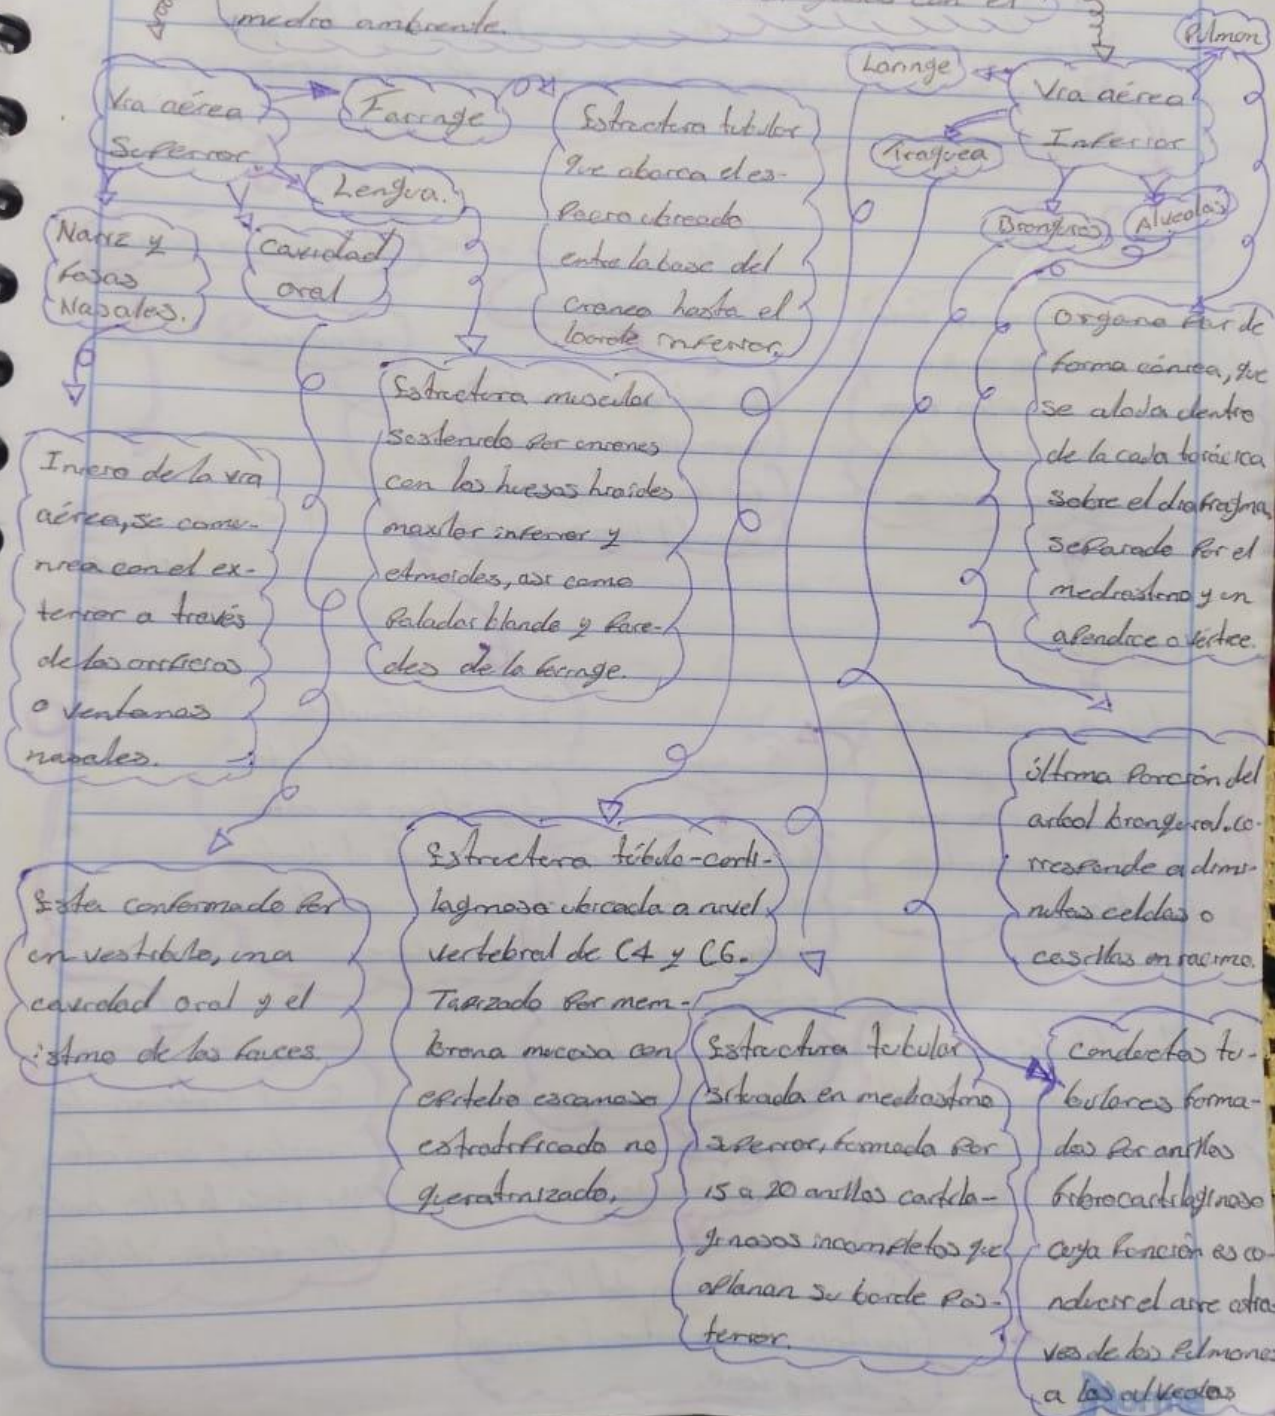 medio ambiente.
Vía aérea
Superior.
Faringe
Lengua.
Nariz y
fosas
Nasales.
cavidad
oral
Estructura tubular
que abarca el es-
pacio ubicado
entre la base del
craneo hasta el
borde inferior.
Laringe
Pulmon
Vía aérea
Inferior
Traquea
Bronquios
Alveolos
Organo par de
forma cónica, que
se aloja dentro
de la caja torácica
sobre el diafragma,
separado por el
mediastino y un
apendice o vértice.
Estructura muscular
sostenido por uniones
con los huesos hioides
maxilar inferior y
etmoides, así como
paladar blando y pare-
des de la faringe.
Inicio de la vía
aérea, se comu-
nica con el ex-
terior a través
de los orificios
o ventanas
nasales.
Última porción del
arbol bronquial. co-
rresponde a dimi-
nutas celdas o
casillas en racimo.
Esta conformado por
un vestibulo, una
cavidad oral y el
istmo de las fauces.
Estructura túbulo-carti-
laginosa ubicada a nivel
vertebral de C4 y C6.
Tapizado por mem-
brana mucosa con
epitelio escamoso
estratificado no
queratinizado.
Estructura tubular
situada en mediastino
superior, formada por
15 a 20 anillos cartila-
ginosos incompletos que
aplanan su borde pos-
terior.
Conductos tu-
bulares forma-
dos por anillos
fibrocartilaginoso
cuya función es co-
nducir el aire atra-
ves de los pulmones
a los alveolos